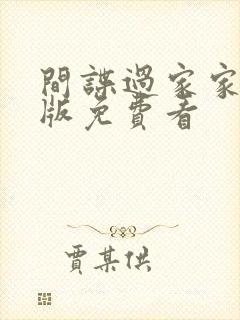 間諜過家家
版免費看
賈某供